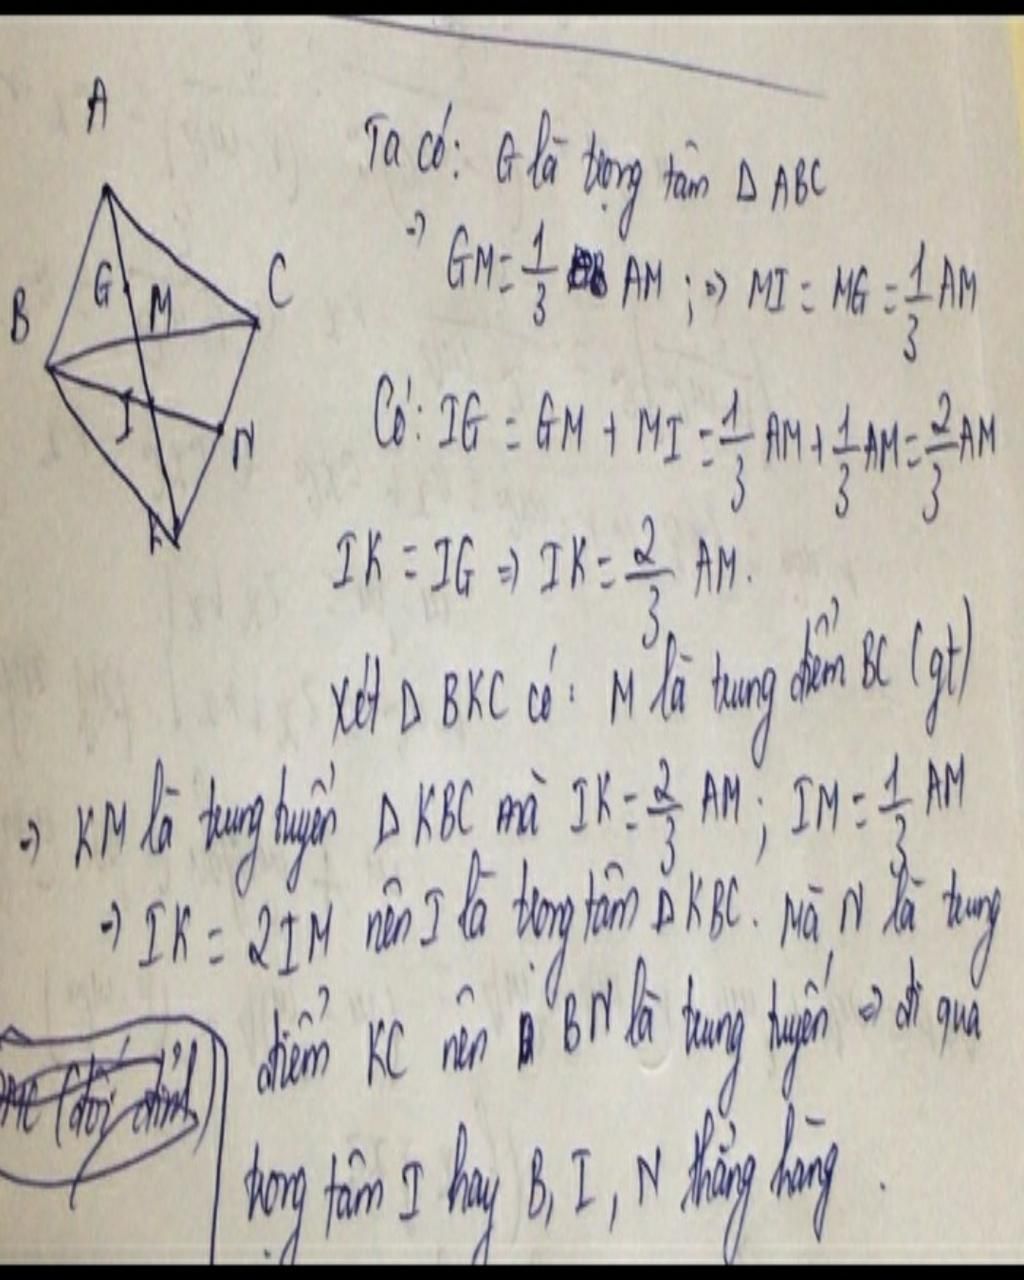 A
B
G
M
C
I
N
K
Ta có: G là trọng tâm Δ ABC
⇒ GM = 1/3 AM ; ⇒ MI = MG = 1/3 AM
Có: IG = GM + MI = 1/3 AM + 1/3 AM = 2/3 AM
IK = IG ⇒ IK = 2/3 AM.
Xét Δ BKC có: M là trung điểm BC (gt)
⇒ KM là trung tuyến Δ KBC mà IK = 2/3 AM ; IM = 1/3 AM
⇒ IK = 2IM nên I là trọng tâm Δ KBC. Mà N là trung
điểm KC nên BN là trung tuyến ⇒ đi qua
trọng tâm I hay B, I, N thẳng hàng.
(đối đỉnh)